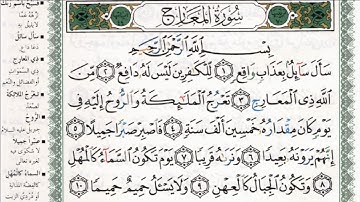 سُورَةُ الْمَعَارِجِ
بِسْمِ اللَّهِ الرَّحْمَٰنِ الرَّحِيمِ
سَأَلَ سَائِلٌ بِعَذَابٍ وَاقِعٍ ١ لِّلْكَافِرِينَ لَيْسَ لَهُ دَافِعٌ ٢ مِّنَ
اللَّهِ ذِي الْمَعَارِجِ ٣ تَعْرُجُ الْمَلَائِكَةُ وَالرُّوحُ إِلَيْهِ فِي
يَوْمٍ كَانَ مِقْدَارُهُ خَمْسِينَ أَلْفَ سَنَةٍ ٤ فَاصْبِرْ صَبْرًا جَمِيلًا ٥
إِنَّهُمْ يَرَوْنَهُ بَعِيدًا ٦ وَنَرَاهُ قَرِيبًا ٧ يَوْمَ تَكُونُ السَّمَاءُ كَالْمُهْلِ
٨ وَتَكُونُ الْجِبَالُ كَالْعِهْنِ ٩ وَلَا يَسْأَلُ حَمِيمٌ حَمِيمًا ١٠
سَأَلَ سَائِلٌ
ذِي الْمَعَارِجِ
تَعْرُجُ الْمَلَائِكَةُ
الرُّوحُ
صَبْرًا جَمِيلًا
السَّمَاءُ كَالْمُهْلِ